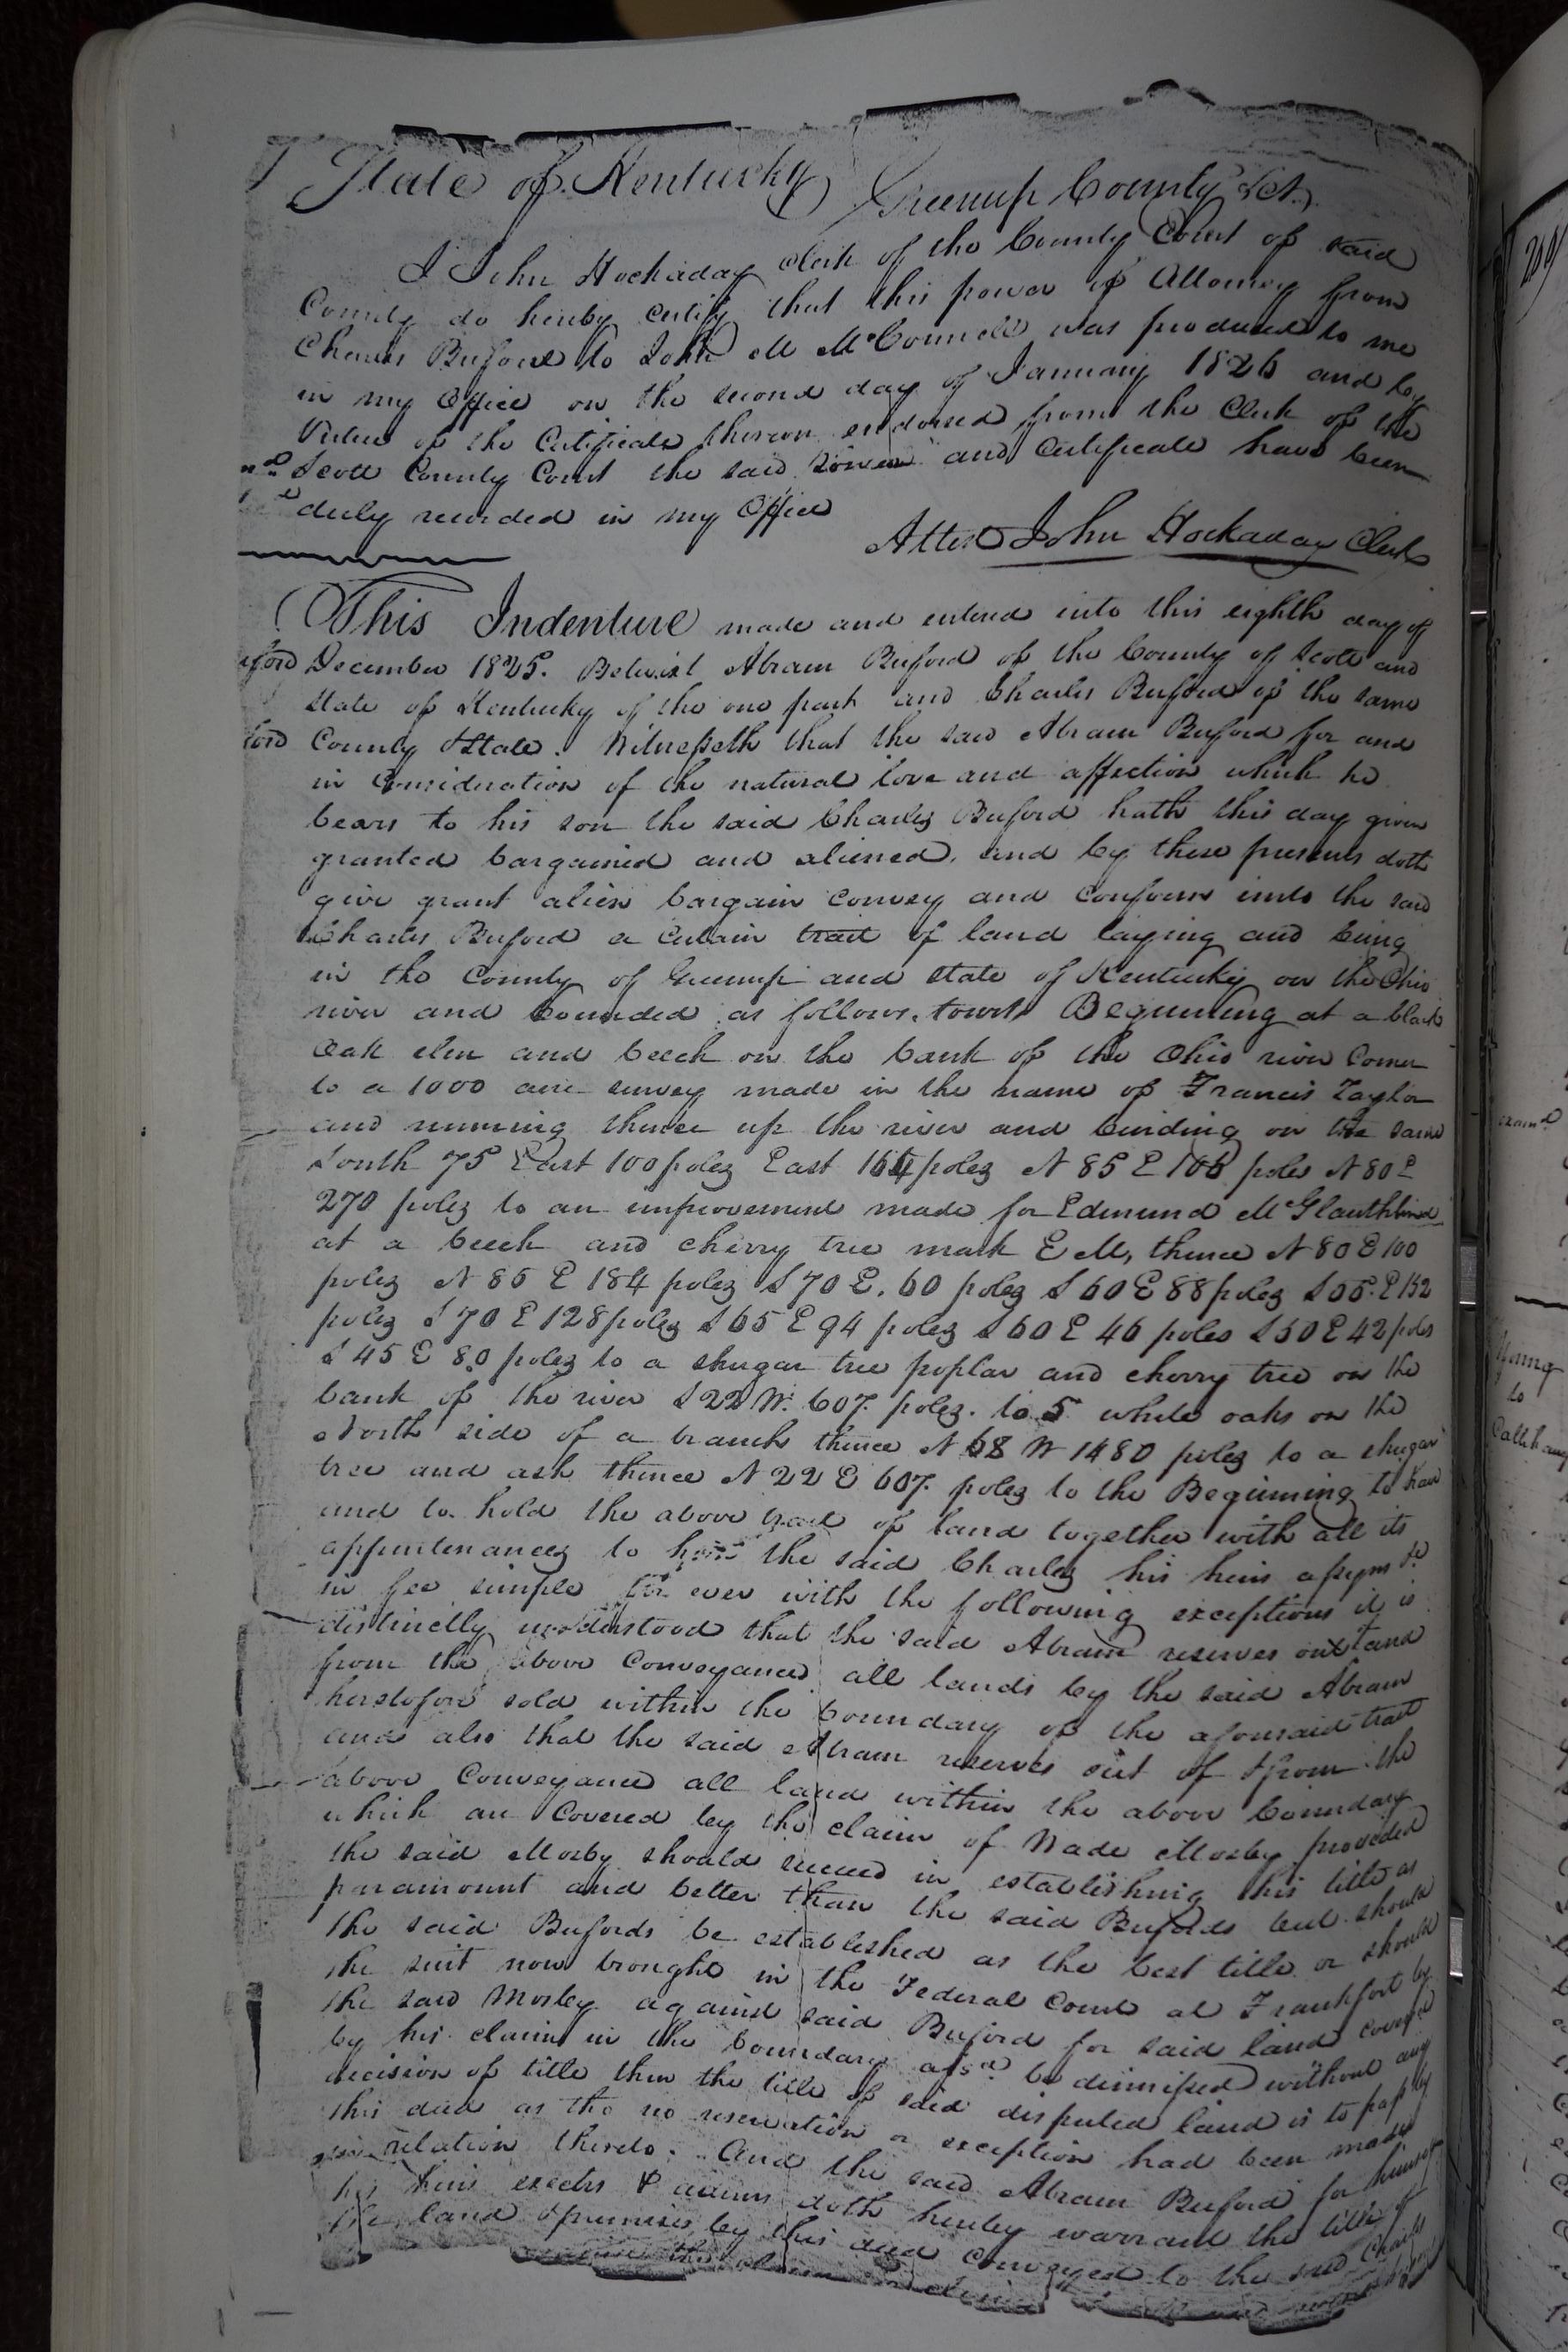 State of Kentucky Greenup County Sct.
I John Hockaday Clerk of the County Court of said
County do hereby certify that this power of Attorney from
Charles Buford to John M McConnell was produced to me
in my Office on the second day of January 1826 and by
Virtue of the Certificate thereon endorsed from the Clerk of the
Scott County Court the said power and Certificate have been
duly recorded in my Office
Attest John Hockaday Clerk
This Indenture made and entered into this eighth day of
December 1825. Betwixt Abram Buford of the County of Scott and
State of Kentucky of the one part and Charles Buford of the same
County & State. Witnesseth that the said Abram Buford for and
in Consideration of the natural love and affection which he
bears to his son the said Charles Buford hath this day given
granted bargained and aliened, and by these presents doth
give grant alien bargain convey and confirm unto the said
Charles Buford a certain tract of land laying and being
in the County of Greenup and State of Kentucky on the Ohio
river and bounded as follows, towit Beginning at a black
Oak elm and beech on the bank of the Ohio river Corner
to a 1000 acre survey made in the name of Francis Taylor
and running thence up the river and binding on the same
South 75 East 100 poles East 164 poles N 85 E 108 poles N 80 E
270 poles to an improvement made for Edmund
at a beech and cherry tree mark E M, thence N 80 E 100
poles N 85 E 184 poles S 70 E. 60 poles S 60 E 88 poles S 55. E 152
poles S 70 E 128 poles S 65 E 94 poles S 60 E 46 poles S 50 E 42 poles
S 45 E 80 poles to a shugar tree poplar and cherry tree on the
bank of the river S 22 W. 607. poles. to 5 white oaks on the
North side of a branch thence N 68 W 1480 poles to a shugar
tree and ash thence N 22 E 607. poles to the Beginning to have
and to hold the above tract of land together with all its
appurtenances to him the said Charles his heirs assigns &c
in fee simple for ever with the following exceptions it is
distinctly understood that the said Abram reserves out and
from the above Conveyance all lands by the said Abram
heretofore sold within the boundary of the aforesaid tract
and also that the said Abram reserves out of & from the
above Conveyance all land within the above boundary
which are Covered by the claim of Wade Mosby provided
the said Mosby should succeed in establishing his title as
paramount and better than the said Bufords but should
the said Bufords be established as the best title or should
the suit now brought in the Federal Court at Frankfort by
the said Mosby against said Buford for said land coverd
by his claim in the boundary afsd be dismissed without any
decision of title then the title of said disputed land is to pass by
this deed as tho no reservation or exception had been made
in relation thereto. And the said Abram Buford for himself
his heirs exects & admrs doth hereby warrant the title of
the land & premises by this deed Conveyed to the said Charles
the claim